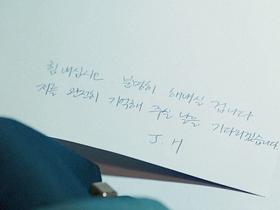 힘내십시오 분명히 해내실 겁니다
저를 완전히 기억해 주실 날을 기다리겠습니다
J. H